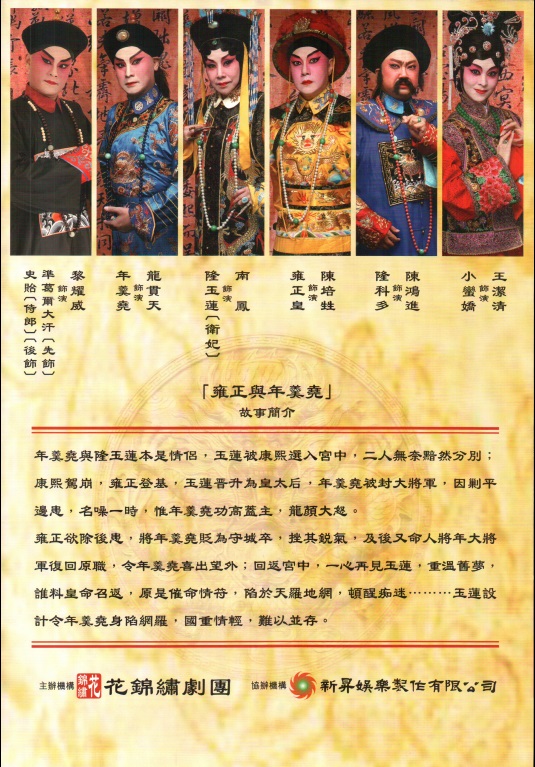 王潔清
飾演
小蠻嬌
陳鴻進
飾演
隆科多
陳培甡
飾演
雍正皇
南鳳
飾演
隆玉蓮〔衛妃〕
龍貫天
飾演
年羹堯
黎耀威
飾演
準葛爾大汗〔先飾〕
史貽〔侍郎〕〔後飾〕
「雍正與年羹堯」
故事簡介
年羹堯與隆玉蓮本是情侶，玉蓮被康熙選入宮中，二人無奈黯然分別；
康熙駕崩，雍正登基，玉蓮晉升為皇太后，年羹堯被封大將軍，因剿平
邊患，名噪一時，惟年羹堯功高蓋主，龍顏大怒。
雍正欲除後患，將年羹堯貶為守城卒，挫其銳氣，及後又命人將年大將
軍復回原職，令年羹堯喜出望外；回返宮中，一心再見玉蓮，重溫舊夢，
誰料皇命召返，原是催命情符，陷於天羅地網，頓醒痴迷………玉蓮設
計令年羹堯身陷網羅，國重情輕，難以並存。
主辦機構 錦繡花 花錦繡劇團 協辦機構 新昇娛樂製作有限公司